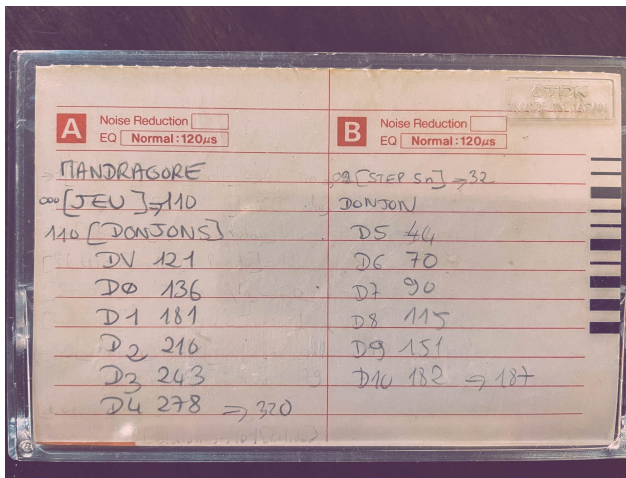 A Noise Reduction
EQ Normal:120µs
MANDRAGORE
000 [JEU] → 110
110 [DONJONS]
DV 121
DØ 136
D1 181
D2 216
D3 243
D4 278 ⇒ 320
B Noise Reduction
EQ Normal:120µs
[STEP Sn] → 32
DONJON
D5 44
D6 70
D7 90
D8 115
D9 151
D10 182 ⇒ 187